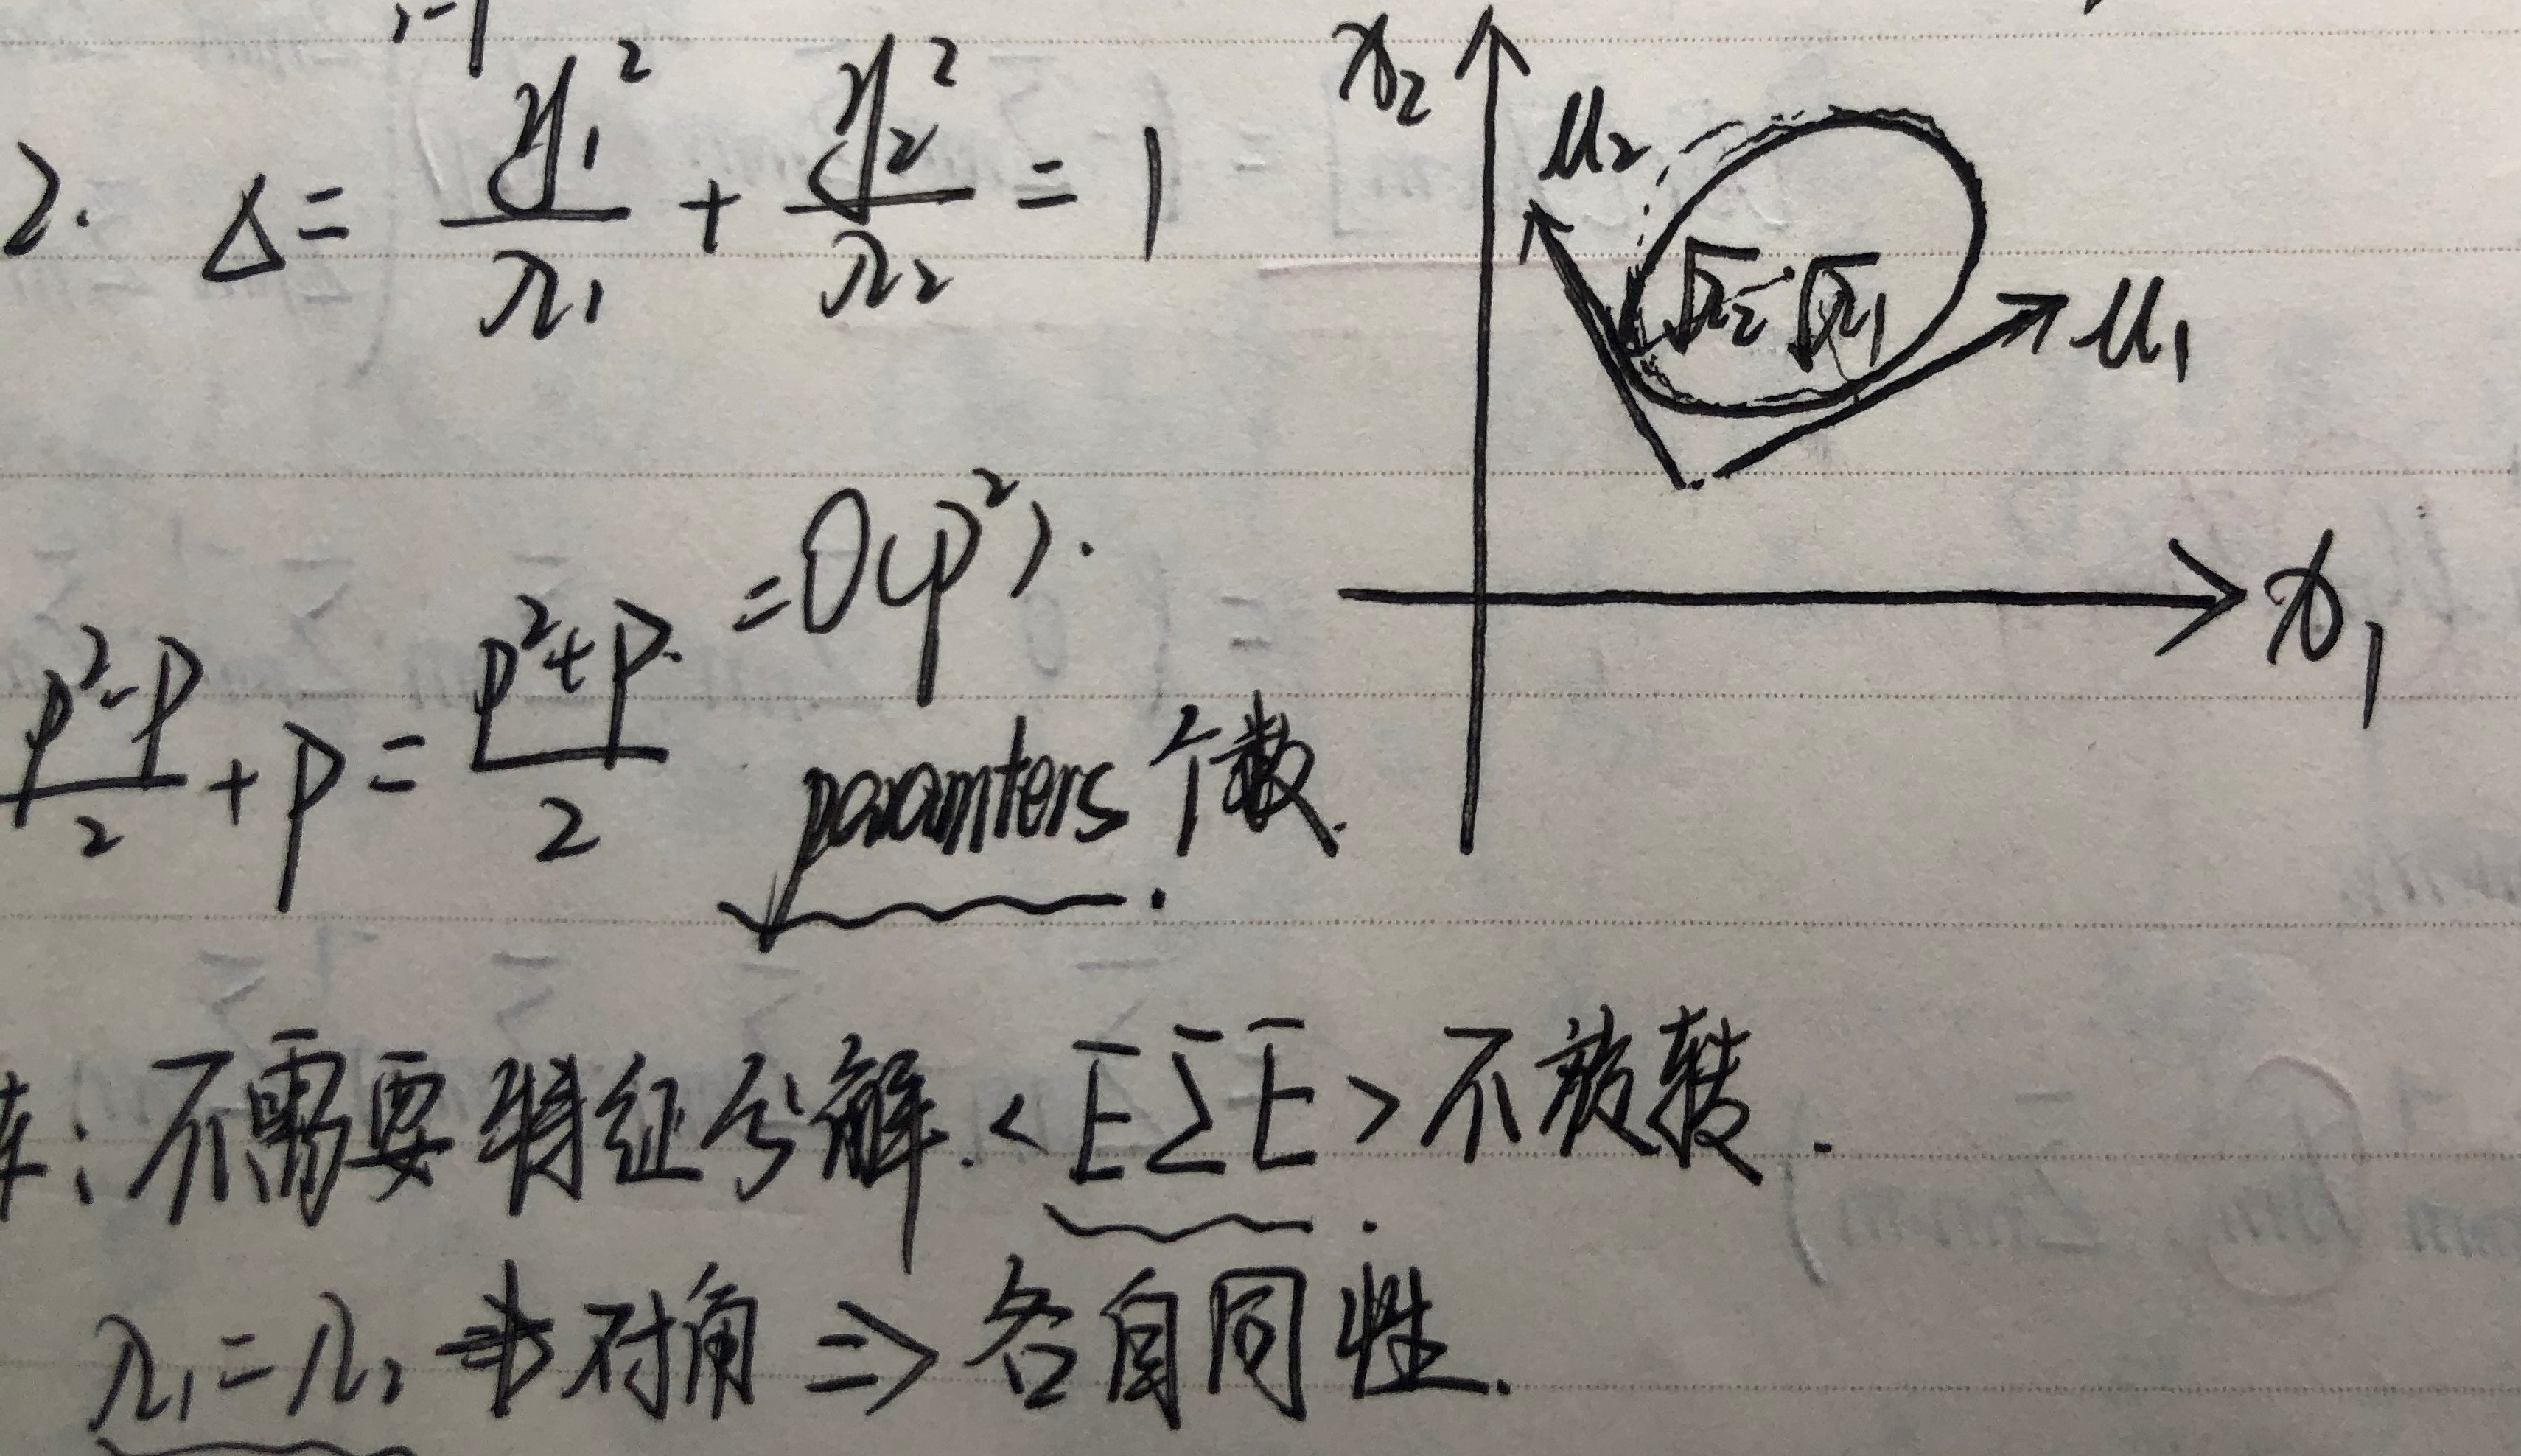 2. Δ = y₁²/λ₁ + y₂²/λ₂ = 1
x₂
u₂
√λ₂ √λ₁
u₁
x₁
(p²-p)/2 + p = (p²+p)/2 = O(p²).
paramters 个数.
: 不需要特征分解. <EΣE> 不旋转.
λ₁=λ₂ 对角 ⇒ 各自同性.